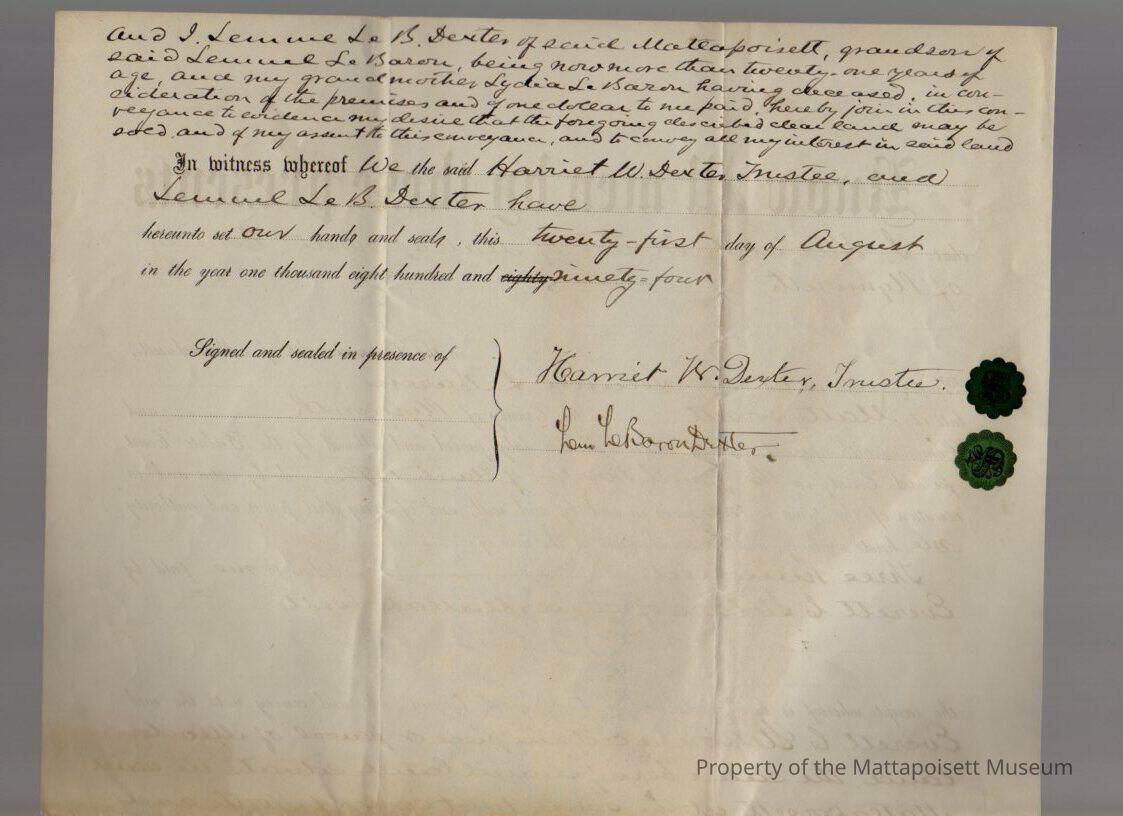 and I. Lemuel Le B. Dexter of said Mattapoisett, grandson of
said Lemuel Le Baron, being now more than twenty-one years of
age, and my grandmother, Lydia Le Baron having deceased, in con-
sideration of the premises and of one dollar to me paid, hereby join in this con-
veyance to evidence my desire that the foregoing described clear land may be
sold, and of my assent to this conveyance, and to convey all my interest in said land
In witness whereof We the said Harriet W. Dexter, Trustee, and
Lemuel Le B. Dexter have
hereunto set our hands and seals, this twenty-first day of August
in the year one thousand eight hundred and eighty ninety-four
Signed and sealed in presence of
Harriet W. Dexter, Trustee.
Lem LeBaron Dexter.
Property of the Mattapoisett Museum